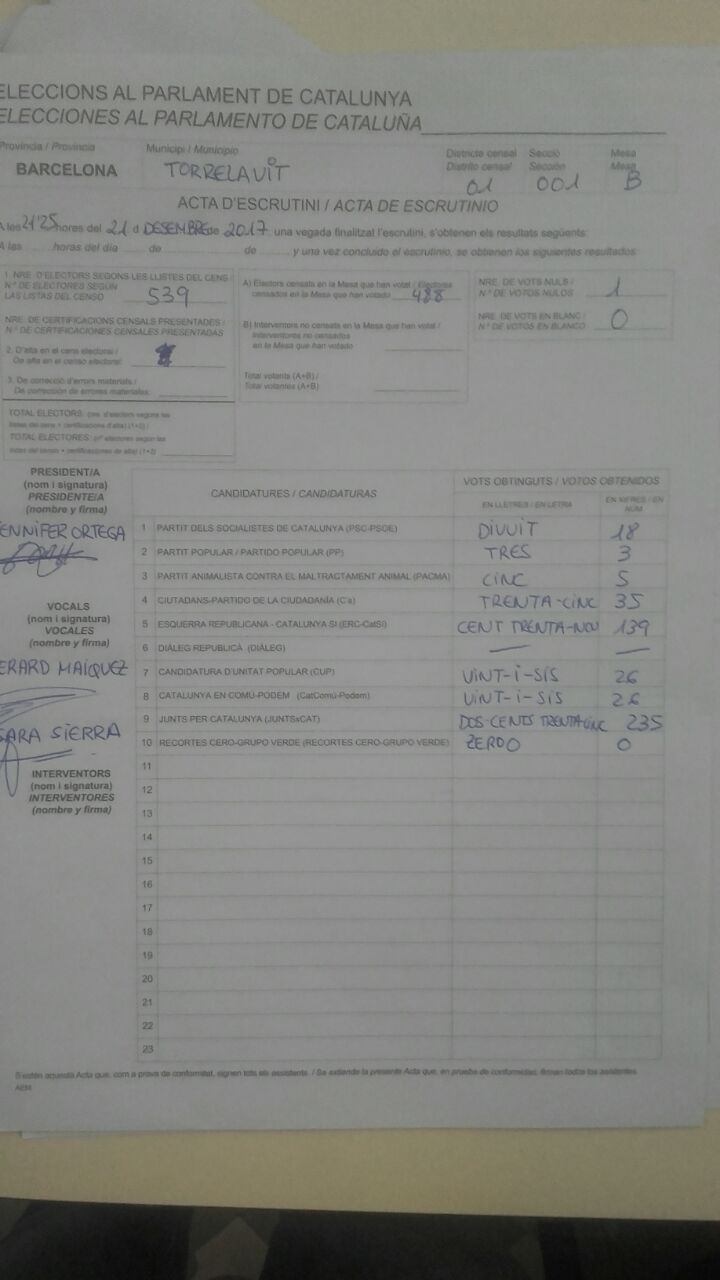 ELECCIONS AL PARLAMENT DE CATALUNYA
ELECCIONES AL PARLAMENTO DE CATALUÑA
Provincia / Provincia
BARCELONA
Municipi / Municipio
TORRELAVIT
Districte censal
Distrito censal
01
Secció
Sección
001
Mesa
Mesa
B
ACTA D'ESCRUTINI / ACTA DE ESCRUTINIO
A les 21'25 hores del 21 d DESEMBRE de 2017 una vegada finalitzat l'escrutini, s'obtenen els resultats següents:
A las ...... horas del día ...... de ...... de ...... y una vez concluido el escrutinio, se obtienen los siguientes resultados:
1. NRE. D'ELECTORS SEGONS LES LLISTES DEL CENS /
Nº DE ELECTORES SEGÚN
LAS LISTAS DEL CENSO
539
NRE. DE CERTIFICACIONS CENSALS PRESENTADES /
Nº DE CERTIFICACIONES CENSALES PRESENTADAS
2. D'alta en el cens electoral /
De alta en el censo electoral:
3. De correcció d'errors materials /
De corrección de errores materiales:
TOTAL ELECTORS: (nre. d'electors segons les
llistes del cens + certificacions d'alta) (1+2) /
TOTAL ELECTORES: (nº electores según las
listas del censo + certificaciones de alta) (1+2)
A) Electors censats en la Mesa que han votat / Electores
censados en la Mesa que han votado
488
B) Interventors no censats en la Mesa que han votat /
Interventores no censados
en la Mesa que han votado
Total votants (A+B) /
Total votantes (A+B)
NRE. DE VOTS NULS /
Nº DE VOTOS NULOS
1
NRE. DE VOTS EN BLANC /
Nº DE VOTOS EN BLANCO
0
PRESIDENT/A
(nom i signatura)
PRESIDENTE/A
(nombre y firma)
ENNIFER ORTEGA
VOCALS
(nom i signatura)
VOCALES
(nombre y firma)
ERARD MAIQUEZ
SARA SIERRA
INTERVENTORS
(nom i signatura)
INTERVENTORES
(nombre y firma)
CANDIDATURES / CANDIDATURAS
VOTS OBTINGUTS / VOTOS OBTENIDOS
EN LLETRES / EN LETRA
EN XIFRES / EN NÚM
1 PARTIT DELS SOCIALISTES DE CATALUNYA (PSC-PSOE) DIVUIT 18
2 PARTIT POPULAR / PARTIDO POPULAR (PP) TRES 3
3 PARTIT ANIMALISTA CONTRA EL MALTRACTAMENT ANIMAL (PACMA) CINC 5
4 CIUTADANS-PARTIDO DE LA CIUDADANÍA (C's) TRENTA-CINC 35
5 ESQUERRA REPUBLICANA - CATALUNYA SI (ERC-CatSI) CENT TRENTA-NOU 139
6 DIÀLEG REPUBLICÀ (DIÀLEG) — —
7 CANDIDATURA D'UNITAT POPULAR (CUP) VINT-I-SIS 26
8 CATALUNYA EN COMÚ-PODEM (CatComú-Podem) VINT-I-SIS 26
9 JUNTS PER CATALUNYA (JUNTSxCAT) DOS-CENTS TRENTA-CINC 235
10 RECORTES CERO-GRUPO VERDE (RECORTES CERO-GRUPO VERDE) ZERO 0
11
12
13
14
15
16
17
18
19
20
21
22
23
S'estén aquesta Acta que, com a prova de conformitat, signen tots els assistents. / Se extiende la presente Acta que, en prueba de conformidad, firman todos los asistentes